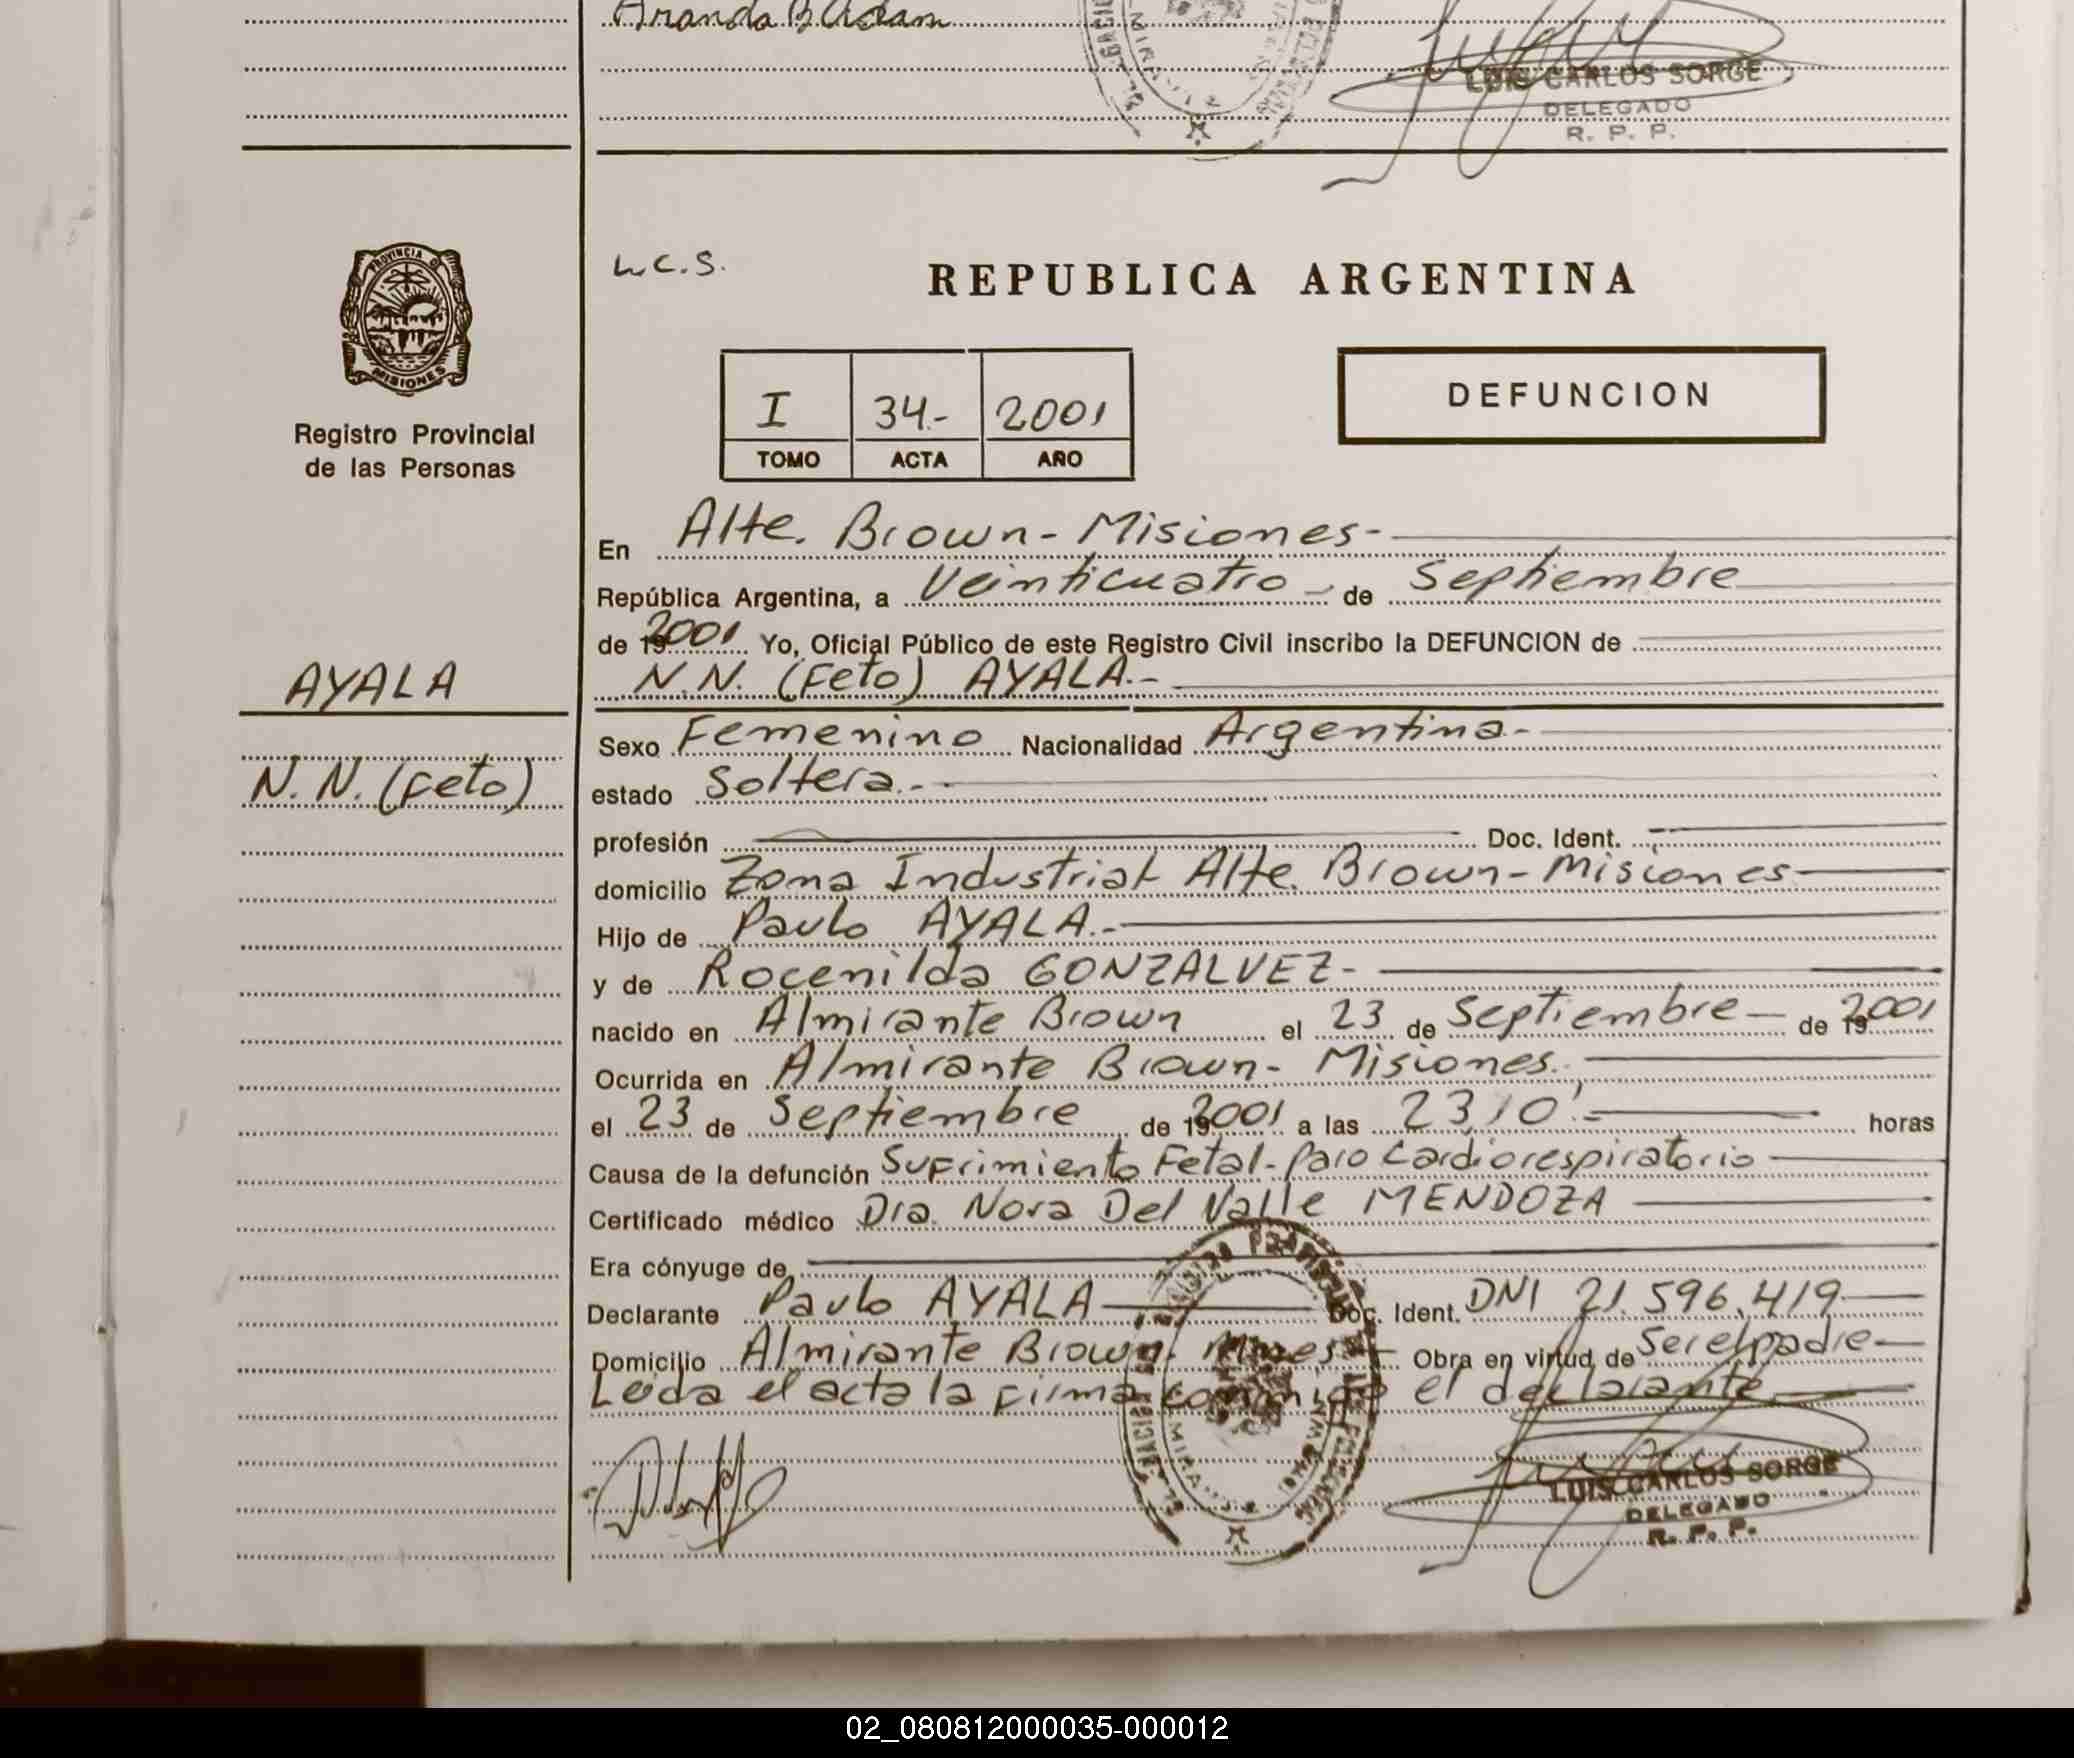 Aranda B. Adam
LUIS CARLOS SORGE
DELEGADO
R. P. P.
PROVINCIA DE
MISIONES
Registro Provincial
de las Personas
L.C.S.
REPUBLICA ARGENTINA
I 34.- 2001
TOMO ACTA AÑO
DEFUNCION
En Alte. Brown - Misiones -
República Argentina, a Veinticuatro - de Septiembre
de 2001 Yo, Oficial Público de este Registro Civil inscribo la DEFUNCION de
N.N. (Feto) AYALA.-
AYALA
N.N. (Feto)
Sexo Femenino Nacionalidad Argentina.-
estado Soltera.-
profesión Doc. Ident.
domicilio Zona Industrial Alte. Brown - Misiones
Hijo de Paulo AYALA.-
y de Rocenilda GONZALVEZ-
nacido en Almirante Brown el 23 de Septiembre - de 2001
Ocurrida en Almirante Brown - Misiones.-
el 23 de Septiembre de 2001 a las 23,10'.- horas
Causa de la defunción Sufrimiento Fetal - Paro Cardiorespiratorio
Certificado médico Dra. Nora Del Valle MENDOZA
Era cónyuge de
Declarante Paulo AYALA Doc. Ident. DNI 21.596.419
Domicilio Almirante Brown - Mnes - Obra en virtud de Ser el padre -
Leida el acta la firma conmigo el declarante
LUIS CARLOS SORGE
DELEGADO
R. P. P.
02_080812000035-000012